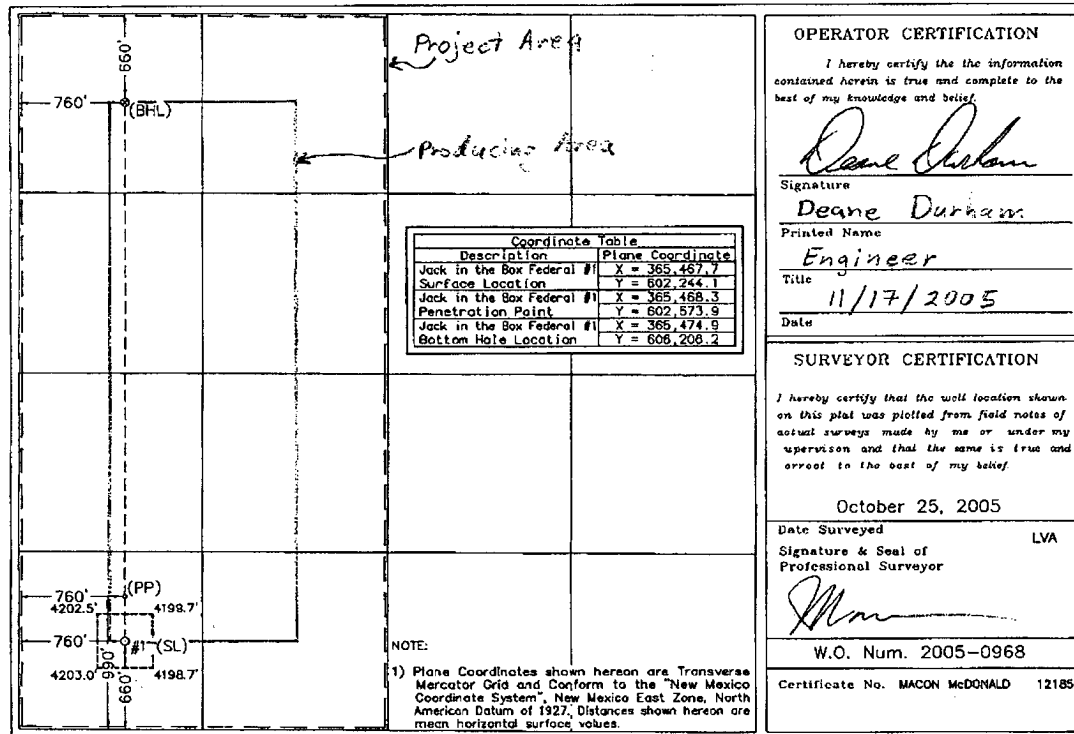 660'
Project Area
760'
(BHL)
Producing Area
Coordinate Table
Description Plane Coordinate
Jack in the Box Federal #1 X = 365,467.7
Surface Location Y = 602,244.1
Jack in the Box Federal #1 X = 365,468.3
Penetration Point Y = 602,573.9
Jack in the Box Federal #1 X = 365,474.9
Bottom Hole Location Y = 606,208.2
(PP)
760'
4202.5' 4199.7'
760'
#1 (SL)
990'
4203.0' 4198.7'
660'
NOTE:
1) Plane Coordinates shown hereon are Transverse
Mercator Grid and Conform to the "New Mexico
Coordinate System", New Mexico East Zone, North
American Datum of 1927. Distances shown hereon are
mean horizontal surface values.
OPERATOR CERTIFICATION
I hereby certify the the information
contained herein is true and complete to the
best of my knowledge and belief.
Deane Durham
Signature
Deane Durham
Printed Name
Engineer
Title
11/17/2005
Date
SURVEYOR CERTIFICATION
I hereby certify that the well location shown
on this plat was plotted from field notes of
actual surveys made by me or under my
upervison and that the same is true and
orrect to the best of my belief.
October 25, 2005
Date Surveyed LVA
Signature & Seal of
Professional Surveyor
W.O. Num. 2005-0968
Certificate No. MACON McDONALD 12185